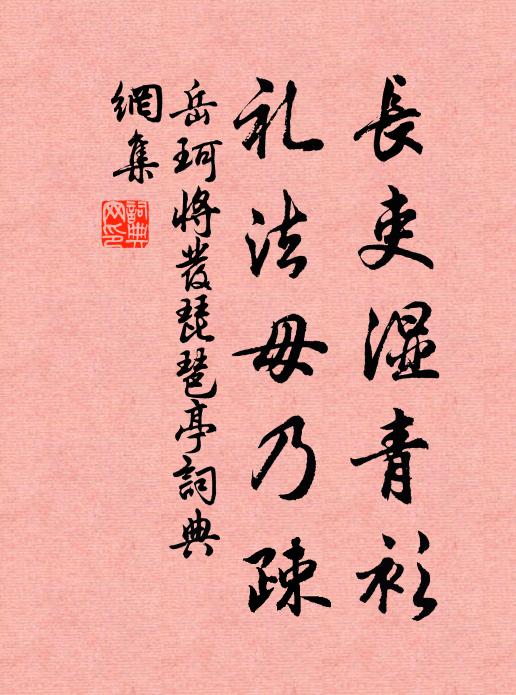 長吏濕青衫
礼法毋乃疎
岳珂將發琵琶亭詞典
網集
詞典網印